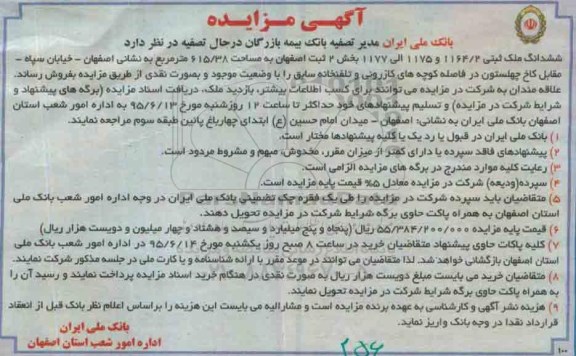 آگهی مزایده
بانک ملی ایران مدیر تصفیه بانک بیمه بازرگان درحال تصفیه در نظر دارد
ششدانگ ملک ثبتی ۱۱۶۴/۲ و ۱۱۷۵ الی ۱۱۷۷ بخش ۲ ثبت اصفهان به مساحت ۶۱۵/۳۸ مترمربع به نشانی اصفهان - خیابان سپاه -
مقابل کاخ چهلستون در فاصله کوچه های کازرونی و تلفنخانه سابق را با وضعیت موجود و بصورت نقدی از طریق مزایده بفروش رساند.
علاقه مندان به شرکت در مزایده می توانند برای کسب اطلاعات بیشتر، بازدید ملک، دریافت اسناد مزایده (برگه های پیشنهاد و
شرایط شرکت در مزایده) و تسلیم پیشنهادهای خود حداکثر تا ساعت ۱۲ روزشنبه مورخ ۹۵/۶/۱۳ به اداره امور شعب استان
اصفهان بانک ملی ایران به نشانی: اصفهان - میدان امام حسین (ع) ابتدای چهارباغ پائین طبقه سوم مراجعه نمایند.
۱) بانک ملی ایران در قبول یا رد یک یا کلیه پیشنهادها مختار است.
۲) پیشنهادهای فاقد سپرده یا دارای کمتر از میزان مقرر، مخدوش، مبهم و مشروط مردود است.
۳) رعایت کلیه موارد مندرج در برگه های مزایده الزامی است.
۴) سپرده(ودیعه) شرکت در مزایده معادل ۵% قیمت پایه مزایده است.
۵) متقاضیان باید سپرده شرکت در مزایده را طی یک فقره چک تضمینی بانک ملی ایران در وجه اداره امور شعب بانک ملی
استان اصفهان به همراه پاکت حاوی برگه شرایط شرکت در مزایده تحویل دهند.
۶) قیمت پایه مزایده ۵۵/۳۸۴/۲۰۰/۰۰۰ ریال (پنجاه و پنج میلیارد و سیصد و هشتاد و چهار میلیون و دویست هزار ریال)
۷) کلیه پاکات حاوی پیشنهاد متقاضیان خرید در ساعت ۸ صبح روز یکشنبه مورخ ۹۵/۶/۱۴ در اداره امور شعب بانک ملی
استان اصفهان بازگشائی خواهد شد. لذا متقاضیان می توانند در موعد مقرر با ارائه شناسنامه و یا کارت ملی در جلسه مذکور شرکت نمایند.
۸) متقاضیان خرید می بایست مبلغ دویست هزار ریال به صورت نقدی در هنگام خرید اسناد مزایده پرداخت نمایند و رسید آن را
به همراه پاکت حاوی برگه شرایط شرکت در مزایده تحویل نمایند.
۹) هزینه نشر آگهی و کارشناسی به عهده برنده مزایده است و مشارالیه می بایست این هزینه را براساس اعلام نظر بانک قبل از انعقاد
قرارداد نقدا در وجه بانک واریز نماید.
بانک ملی ایران
اداره امور شعب استان اصفهان
۱۰۰